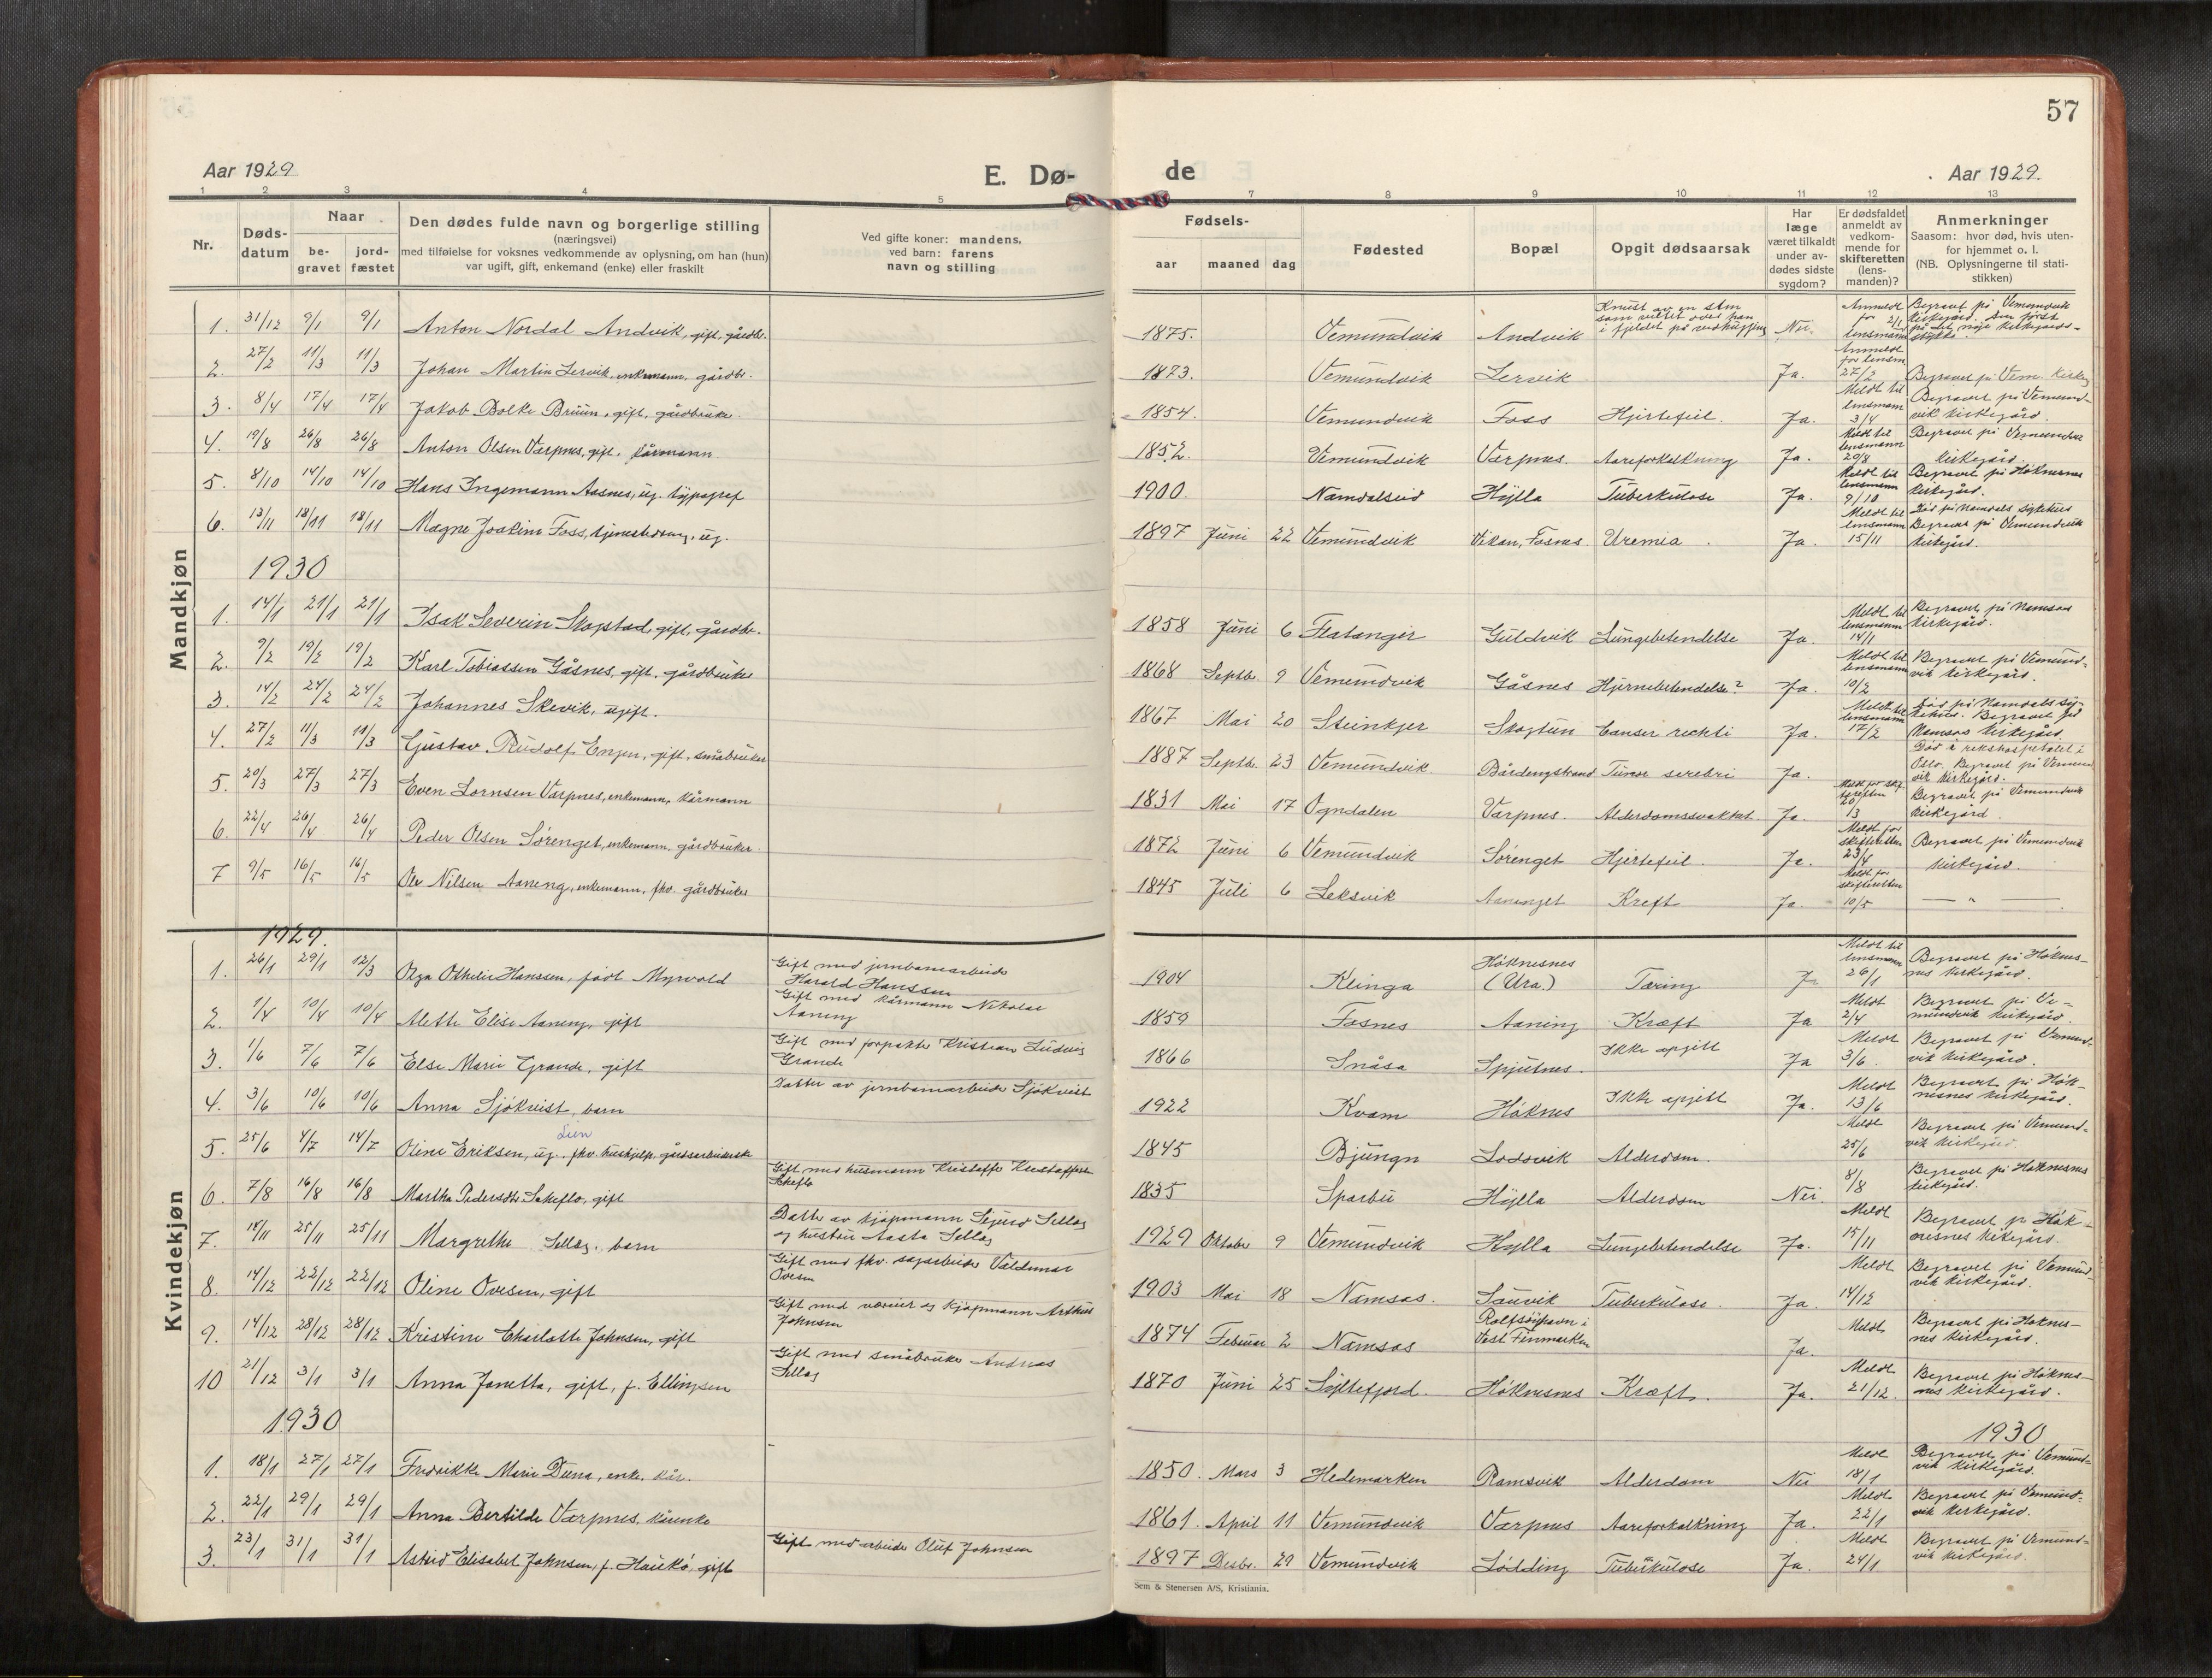 57
Aar 1929
E. Dø-
de
Aar 1929.
1 2 3 4 5 7 8 9 10 11 12 13
Nr.
Døds-
datum
Naar
be-
gravet
jord-
fæstet
Den dødes fulde navn og borgerlige stilling
(næringsvei)
med tilføielse for voksnes vedkommende av oplysning, om han (hun)
var ugift, gift, enkemand (enke) eller fraskilt
Ved gifte koner: mandens,
ved barn: farens
navn og stilling
Fødsels-
aar maaned dag
Fødested
Bopæl
Opgit dødsaarsak
Har
læge
været tilkaldt
under av-
dødes sidste
sygdom?
Er dødsfaldet
anmeldt av
vedkom-
mende for
skifteretten
(lens-
manden)?
Anmerkninger
Saasom: hvor død, hvis uten-
for hjemmet o. l.
(NB. Oplysningerne til stati-
stikken)
Mandkjøn
1. 31/12 9/1 9/1 Anton Nordal Andvik, gift, gårdbr. 1875. Vemundvik Andvik Knust av en sten som veltet over han i fjeldet på vedhugging Nei. Anmeldt for lensmann 2/1 Begravet på Vemundvik kirkegård. Den først på det nye kirkegårds-stykke.
2. 27/2 11/3 11/3 Johan Martin Lervik, enkemann, gårdbr. 1873. Vemundvik Lervik Ja. Anmeldt for lensm 27/2 Begravet på Vem. kirkeg
3. 8/4 17/4 17/4 Jakob Bolke Bruun, gift, gårdbruker. 1854. Vemundvik Foss Hjertefeil. Ja. Meldt til lensmann 3/4 Begravet på Vemund-vik kirkegård.
4. 19/8 26/8 26/8 Anton Olsen Varpnes, gift, kårmann 1852. Vemundvik Varpnes. Aareforkalkning Ja. Meldt til lensmann 20/8 Begravet på Vemundvik kirkegård.
5. 8/10 14/10 14/10 Hans Ingemann Aasnes, ug. typograf 1900. Namdalseid Hylla Tuberkulose Ja. Meldt til lensmann 9/10 Begravet på Høknesnes kirkegård.
6. 13/11 18/11 18/11 Magne Joakim Foss, tjenestedreng, ug. 1897 Juni 22 Vemundvik Vikan, Fosnes. Uremia. Ja. Meldt til lensmann 15/11 Død på Namdals sykehus Begravet på Vemundvik kirkegård.
1930
1. 14/1 21/1 21/1 Isak Severin Skogstad, gift, gårdbr. 1858 Juni 6 Flatanger Guldvik Lungebetendelse Ja. Meldt til lensmann 14/1 Begravet på Namsos kirkegård.
2. 9/2 19/2 19/2 Karl Tobiassen Gåsnes, gift, gårdbruker 1868 Septbr. 9 Vemundvik Gåsnes Hjernebetendelse? Ja. Meldt til lensmann 10/2 Begravet på Vemund-vik kirkegård.
3. 14/2 24/2 24/2 Johannes Skevik, ugift. 1867 Mai 20 Steinkjer Skogtun Canser reckti Ja. Meldt til lensmann 17/2 Død på Namdals sy-kehus. Begravet på Namsos kirkegård.
4. 27/2 11/3 11/3 Gustav Rudolf Engen, gift, småbruker 1887 Septbr. 23 Vemundvik. Bårdengstrand Tumor serebri Ja. Død i rikshospitalet i Oslo. Begravet på Vemund vik kirkegård.
5. 20/3 27/3 27/3 Even Lornsen Varpnes, enkemann, kårmann 1831 Mai 17 Ogndalen Varpnes. Alderdomssvakhet Ja. Meldt for skifteretten 20/3 Begravet på Vemundvik kirkegård.
6. 22/4 26/4 26/4 Peder Olsen Sørenget, enkemann, gårdbruker. 1872 Juni 6 Vemundvik Sørenget Hjertefeil. Ja. Meldt for skifteretten 23/4 Begravet på Vemundvik kirkegård.
7 9/5 16/5 16/5 Ole Nilsen Aaneng, enkemann, fhv. gårdbruker 1845 Juli 6 Leksvik Aaneng Kreft Ja. Meldt for skifteretten 10/5 — " —
Kvindekjøn
1929.
1. 26/1 29/1 12/3 Olga Othelie Hanssen, født Myrvold Gift med jernbanearbeider Harald Hanssen 1904 Klinga Høknesnes (Ura.) Tæring Ja Meldt til lensmann 26/1 Begravet på Høknes-nes kirkegård.
2. 1/4 10/4 10/4 Alette Elise Aaneng, gift Gift med kårmann Nikolai Aaneng 1859 Fosnes Aaning Kræft Ja Meldt 2/4 Begravet på Ve-mundvik kirkegård.
3. 1/6 7/6 7/6 Else Marie Grande, gift Gift med forpakter Kristian Ludvig Grande 1866 Snåsa Spjutnes. Ikke opgitt Ja Meldt 3/6 Begravet på Vemund-vik kirkegård.
4. 3/6 10/6 10/6 Anna Sjøkvist, barn Datter av jernbanearbeider Sjøkvist 1922 Kvam Høknes Ikke opgitt Ja. Meldt 13/6 Begravet på Høk-nesnes kirkegård.
5. 25/6 4/7 14/7 Oline Eriksen, Lien ug., fhv. hushjelp, gårdsarbeiderske 1845 Bjungn Lodsvik Alderdom. Meldt 25/6 Begravet på Vemund-vik kirkegård.
6. 7/8 16/8 16/8 Martha Pedersdtr. Sakeflo, gift Gift med husmann Kristoffer Kristoffersen 1835 Sparbu Hylla Alderdom Nei. 8/8 Begravet på Høknesnes kirkegård.
7. 14/11 25/11 25/11 Margrethe Sellæg, barn Datter av kjøpmann Sigurd Sellæg og hustru Aasta Sellæg 1929 Oktober 9 Vemundvik Hylla Lungebetendelse Ja. Meldt 15/11 Begravet på Høk-nesnes kirkegård.
8. 14/12 22/12 22/12 Oline Ovesen, gift Gift med fhv. sagarbeider Valdemar Ovesen 1903 Mai 18 Namsos. Sauvik Tuberkulose. Ja. Meldt 14/12 Begravet på Vemund-vik kirkegård.
9. 14/12 28/12 28/12 Kristine Charlotte Johnsen, gift Gift med væreier og kjøpmann Arthur Johnsen 1874 Februar 2 Namsos Rolfsøyhavn i Vest Finmarken Ja. Meldt Begravet på Høknes-nes kirkegård.
10 21/12 3/1 3/1 Anna Janetta, gift, f. Ellingsen Gift med småbruker Andreas Sellæg 1870 Juni 25 Syltefjord. Høknesnes Kræft. Ja. Meldt 21/12. Begravet på Høknes-nes kirkegård.
1930
1930
1. 18/1 27/1 27/1 Fredrikke Marie Duna, enke, kår. 1850. Mars 3 Hedemarken Ramsvik Alderdom Nei Meldt 18/1 Begravet på Vemund-vik kirkegård.
2. 22/1 29/1 29/1 Anna Bertilde Varpnes, kårenke 1861. April 11 Vemundvik Varpnes Aareforkalkning Ja. Meldt 22/1 Begravet på Vemund-vik kirkegård.
3. 23/1 31/1 31/1 Astrid Elisabet Johnsen, f. Haukø, gift Gift med arbeider Oluf Johnsen 1897 Desbr. 29 Vemundvik Lødding Tuberkulose Ja. Meldt 24/1 Begravet på Vemund-vik kirkegård.
Sem & Stenersen A/S, Kristiania.